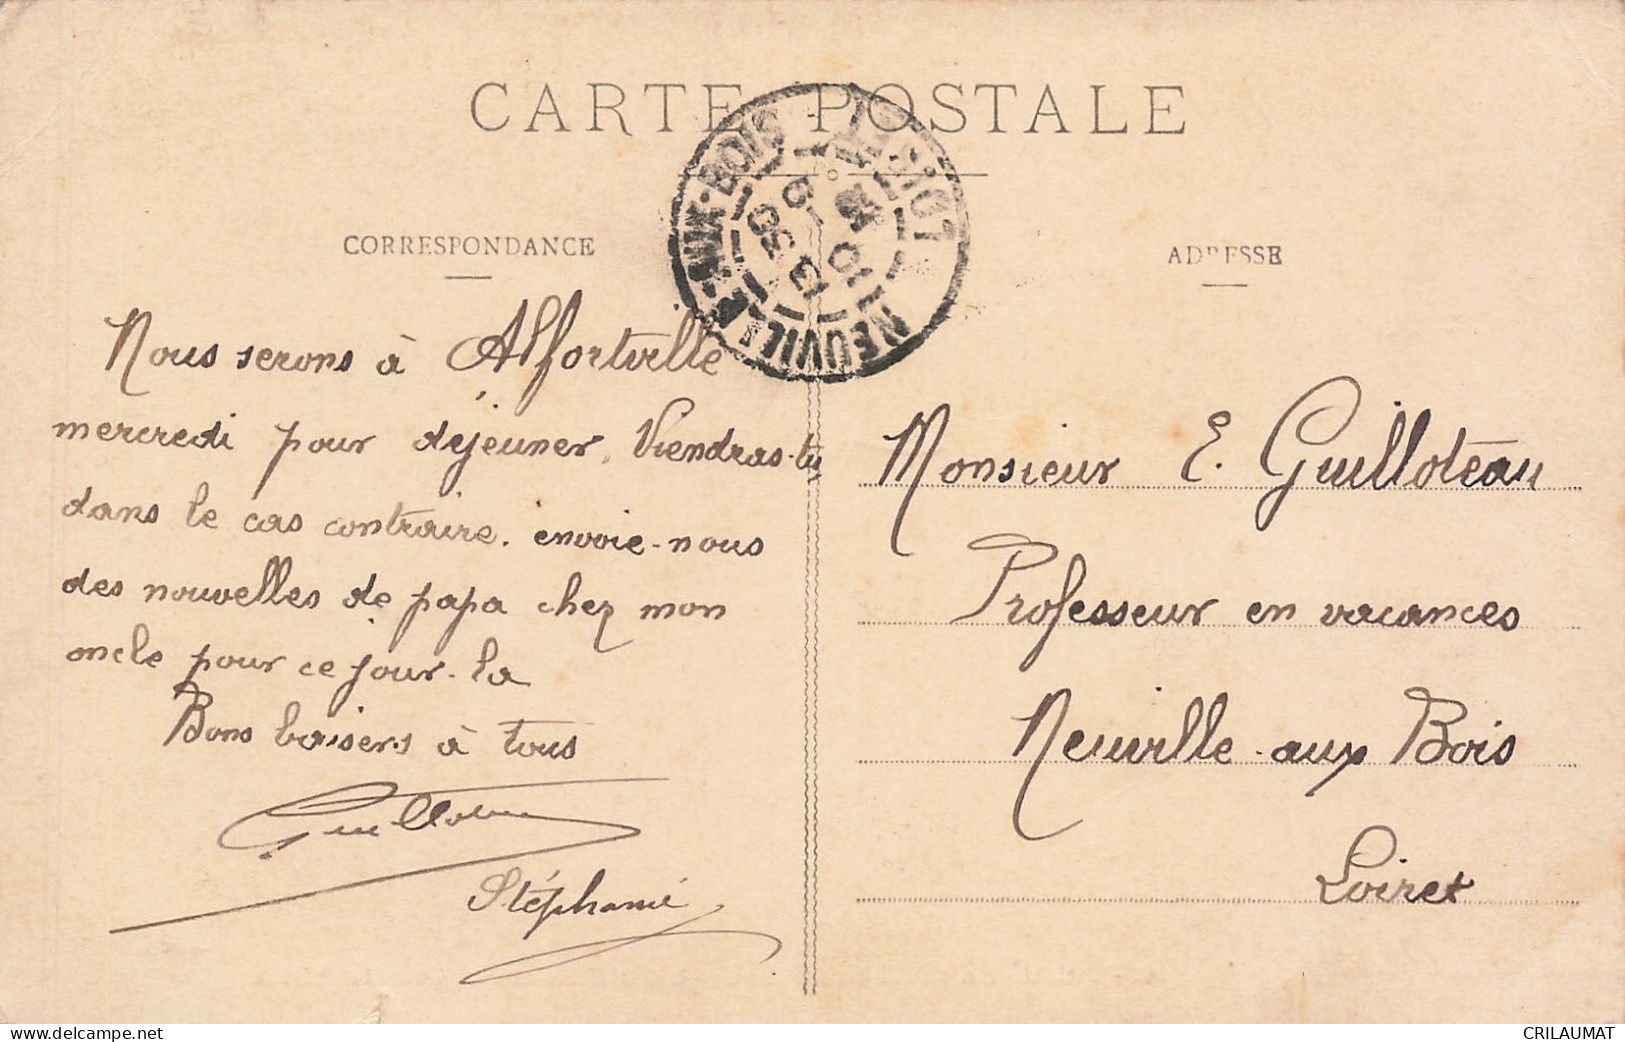 CARTE POSTALE
CORRESPONDANCE
Nous serons à Alfortville
mercredi pour déjeuner. Viendras-tu
dans le cas contraire. envoie-nous
des nouvelles de papa chez mon
oncle pour ce jour-là
Bons baisers à tous
Stéphanie
NEUVILLE-AUX-BOIS
LOIRET
ADRESSE
Monsieur E. Guilloteau
Professeur en vacances
Neuville-aux Bois
Loiret
www.delcampe.net
CRILAUMAT